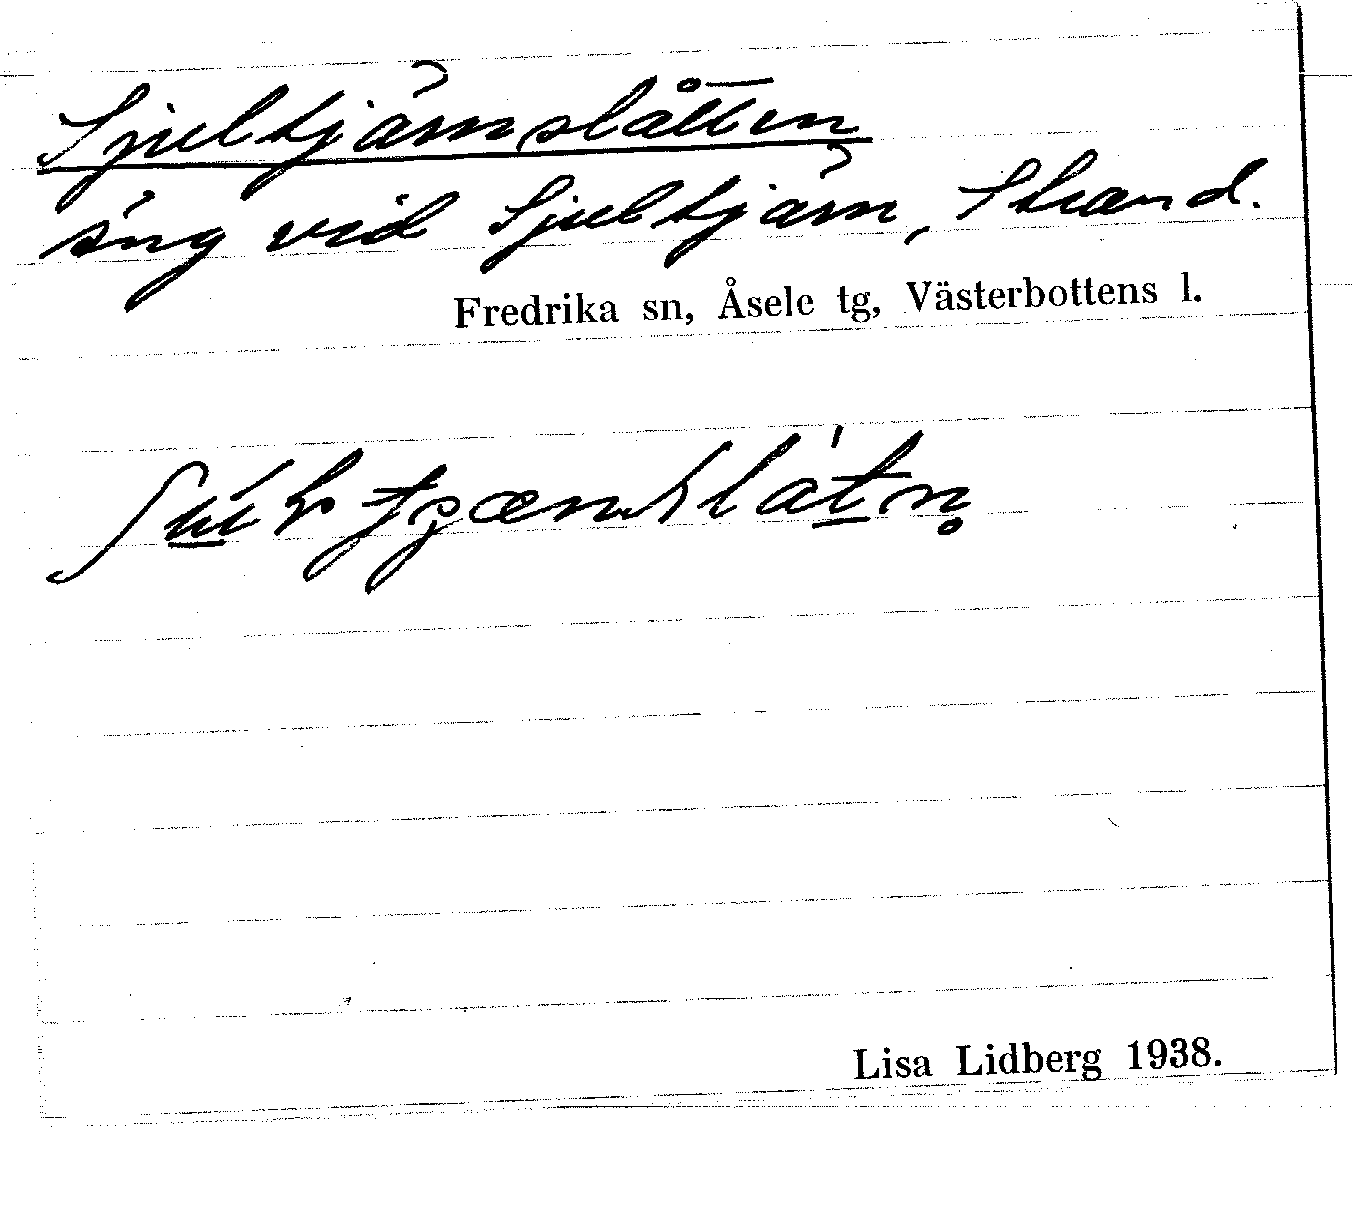 Sjultjärnslåtten
äng vid Sjultjärn, Strand.
Fredrika sn, Åsele tg, Västerbottens l.
Lisa Lidberg 1938.